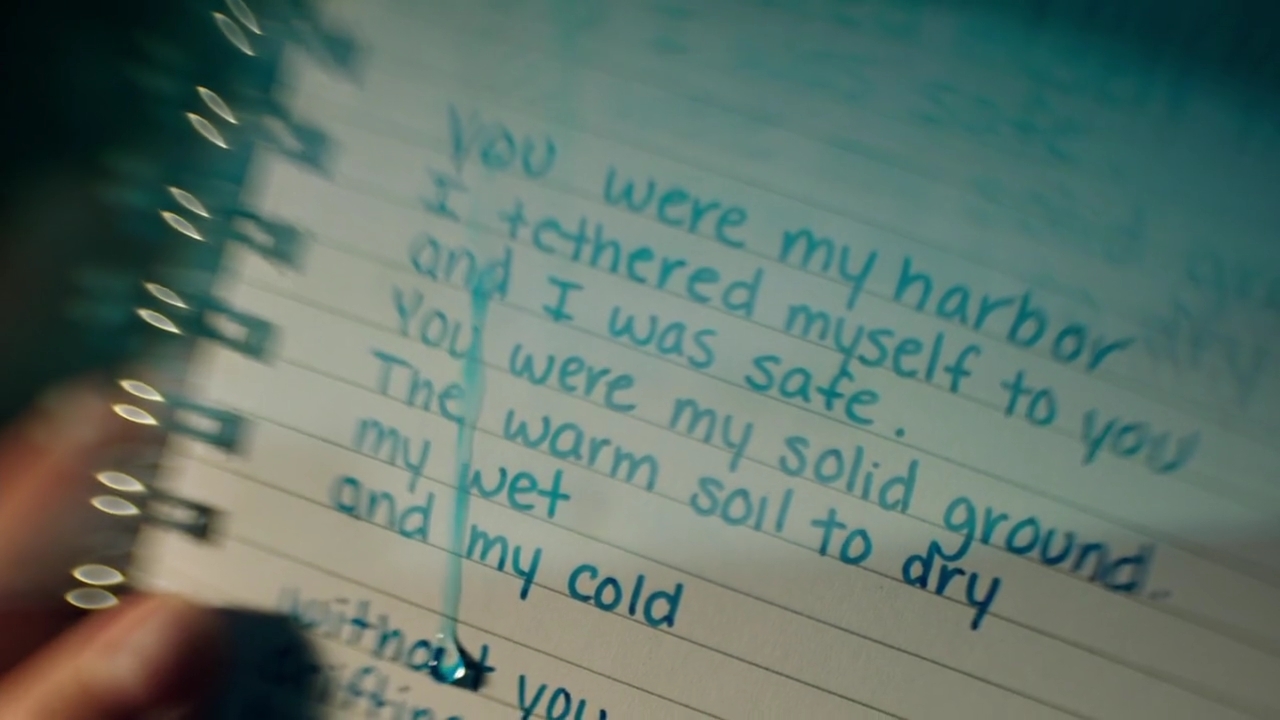 You were my harbor
I tethered myself to you
and I was safe.
You were my solid ground.
The warm soil to dry
my wet
and my cold
without you